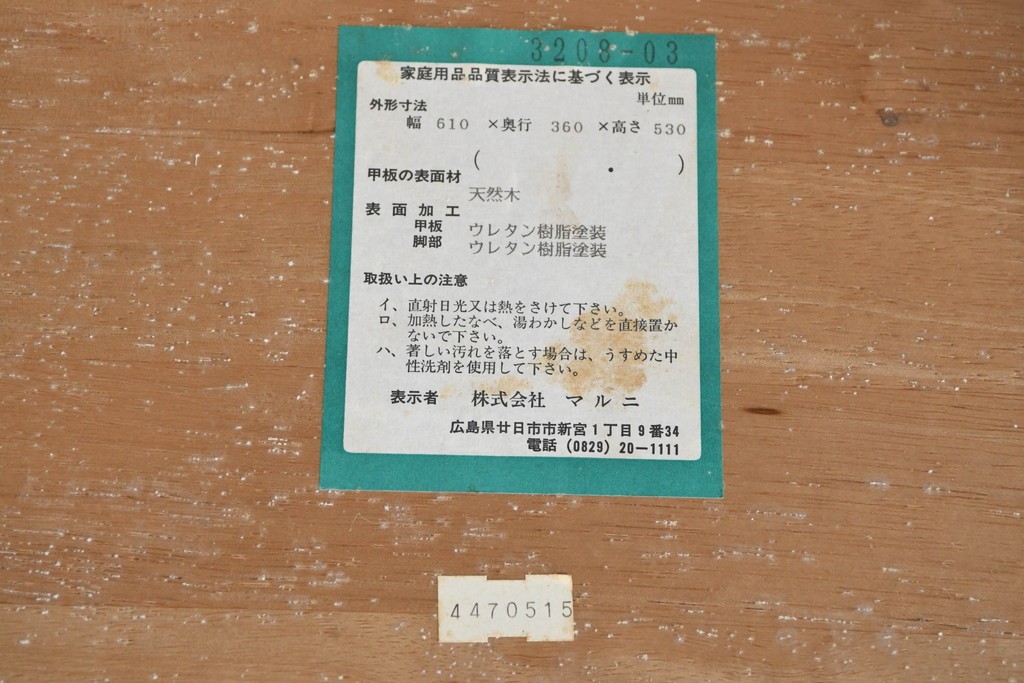 3208-03
家庭用品品質表示法に基づく表示
単位mm
外形寸法
幅 610 ×奥行 360 ×高さ 530
( ・ )
甲板の表面材
天然木
表面加工
甲板 ウレタン樹脂塗装
脚部 ウレタン樹脂塗装
取扱い上の注意
イ、直射日光又は熱をさけて下さい。
ロ、加熱したなべ、湯わかしなどを直接置か
ないで下さい。
ハ、著しい汚れを落とす場合は、うすめた中
性洗剤を使用して下さい。
表示者 株式会社 マルニ
広島県廿日市市新宮1丁目9番34
電話 (0829) 20-1111
4470515